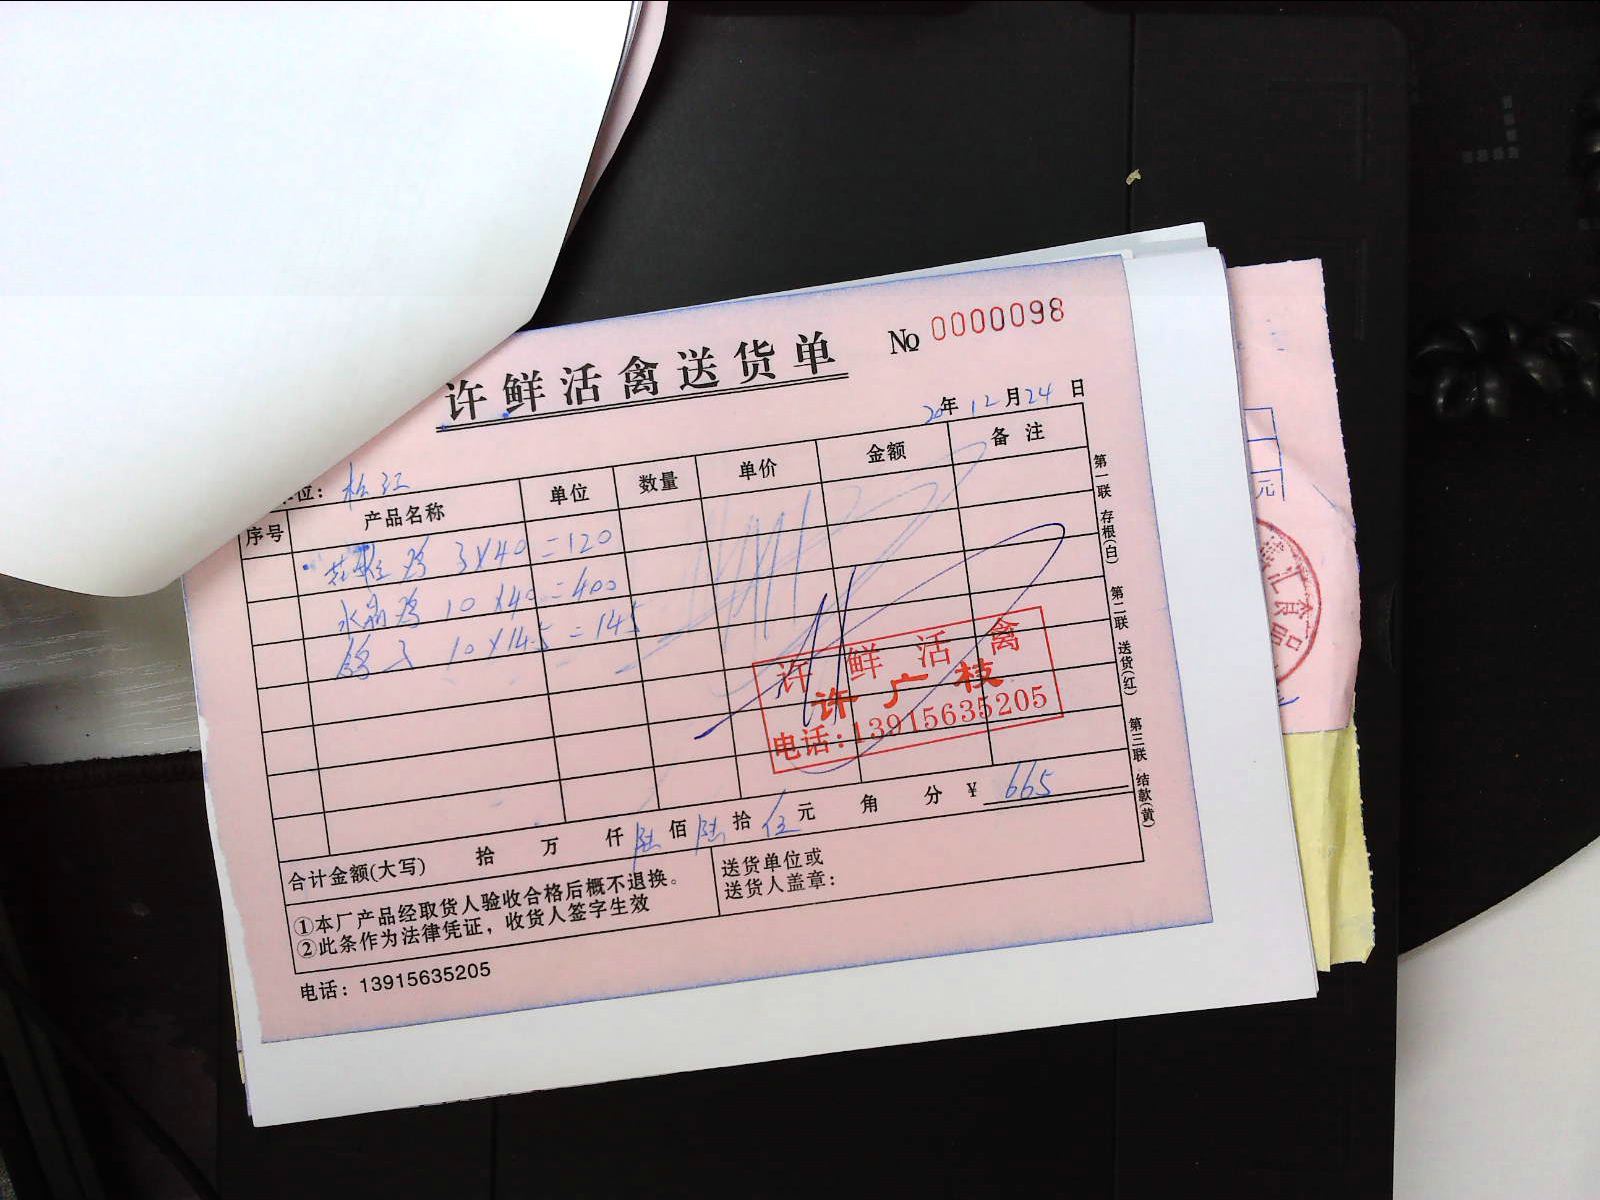 许鲜活禽送货单 № 0000098
20年12月24日
位：松江
序号 产品名称 单位 数量 单价 金额 备注
鸡 3×40=120
水晶鸡 10×40=400
鸽子 10×14.5=145
许鲜活禽
许广枝
电话:13915635205
合计金额(大写) 拾 万 仟 陆 佰 陆 拾 伍 元 角 分 ¥ 665
①本厂产品经取货人验收合格后概不退换。
②此条作为法律凭证，收货人签字生效
送货单位或
送货人盖章：
电话：13915635205
第一联 存根(白)
第二联 送货(红)
第三联 结款(黄)
元
汇食品